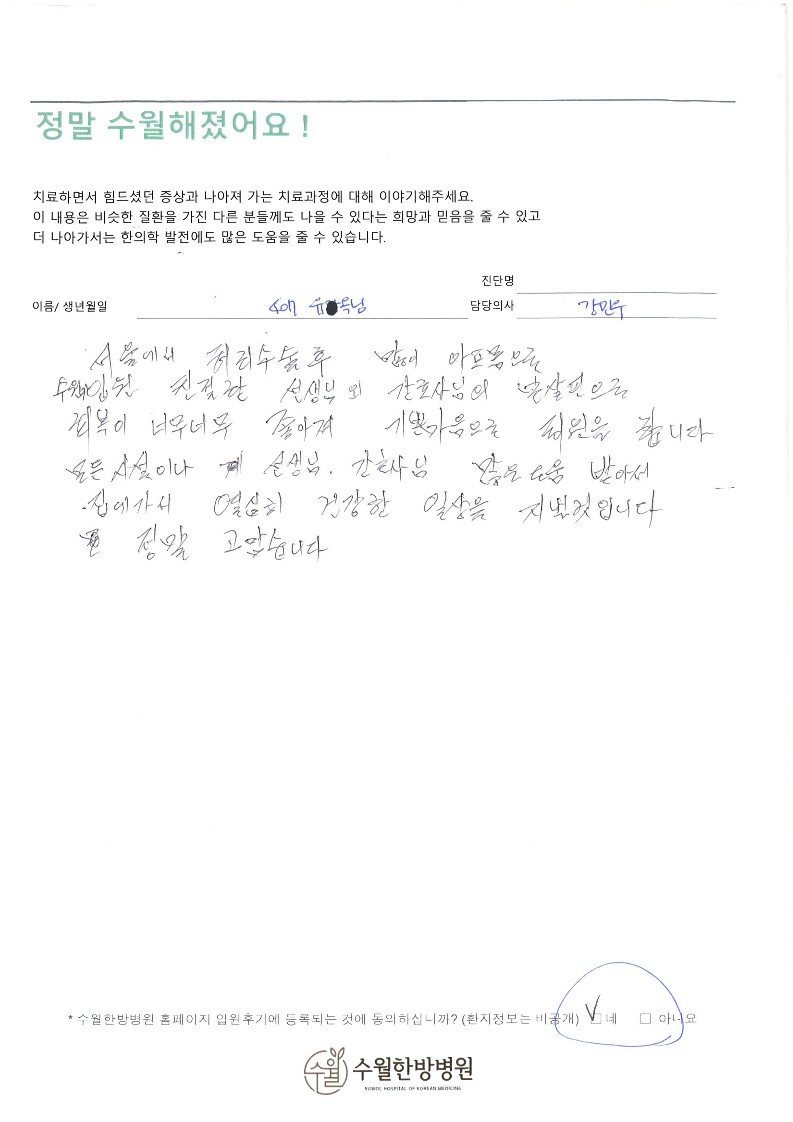 정말 수월해졌어요 !
치료하면서 힘드셨던 증상과 나아져 가는 치료과정에 대해 이야기해주세요.
이 내용은 비슷한 질환을 가진 다른 분들께도 나을 수 있다는 희망과 믿음을 줄 수 있고
더 나아가서는 한의학 발전에도 많은 도움을 줄 수 있습니다.
진단명
이름/ 생년월일 407 유 옥님 담당의사 강민우
서울에서 허리수술후 아프품으로
입원 친절한 선생님 외 간호사님의 보살핌으로
회복이 너무너무 좋아져 기쁜마음으로 퇴원을 합니다
모든 시설이나 선생님. 간호사님 많은 도움 받아서
집에가서 열심히 건강한 일상을 지낼것입니다
정말 고맙습니다
* 수월한방병원 홈페이지 입원후기에 등록되는 것에 동의하십니까? (환자정보는 비공개) ☑ 네 □ 아니요
수월한방병원
SUWOL HOSPITAL OF KOREAN MEDICINE